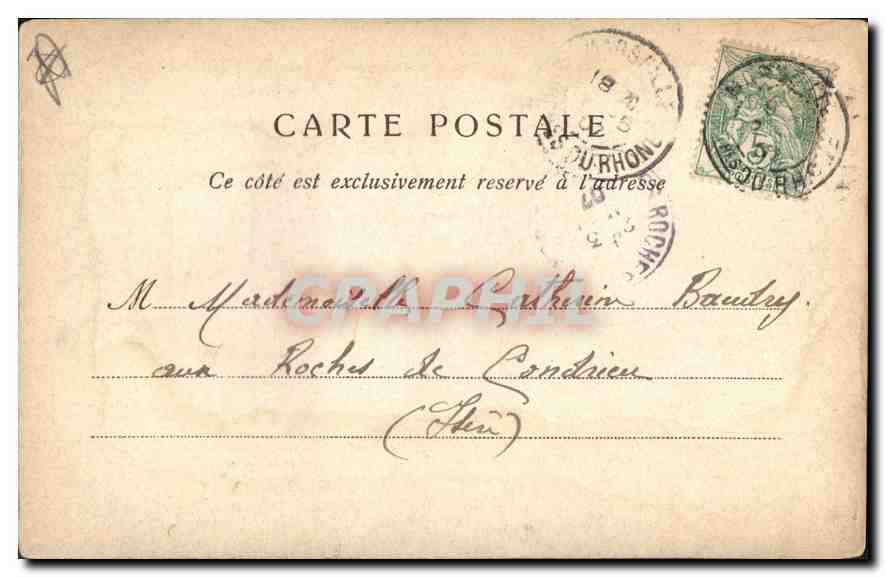 MARSEILLE
18
5
BOUCHES-DU-RHONE
CARTE POSTALE
Ce côté est exclusivement reservé à l'adresse
ROCHES
07
CPAPHIL
M Mademoiselle Catherin Baudry
aux Roches de Condrieu
(Isère)